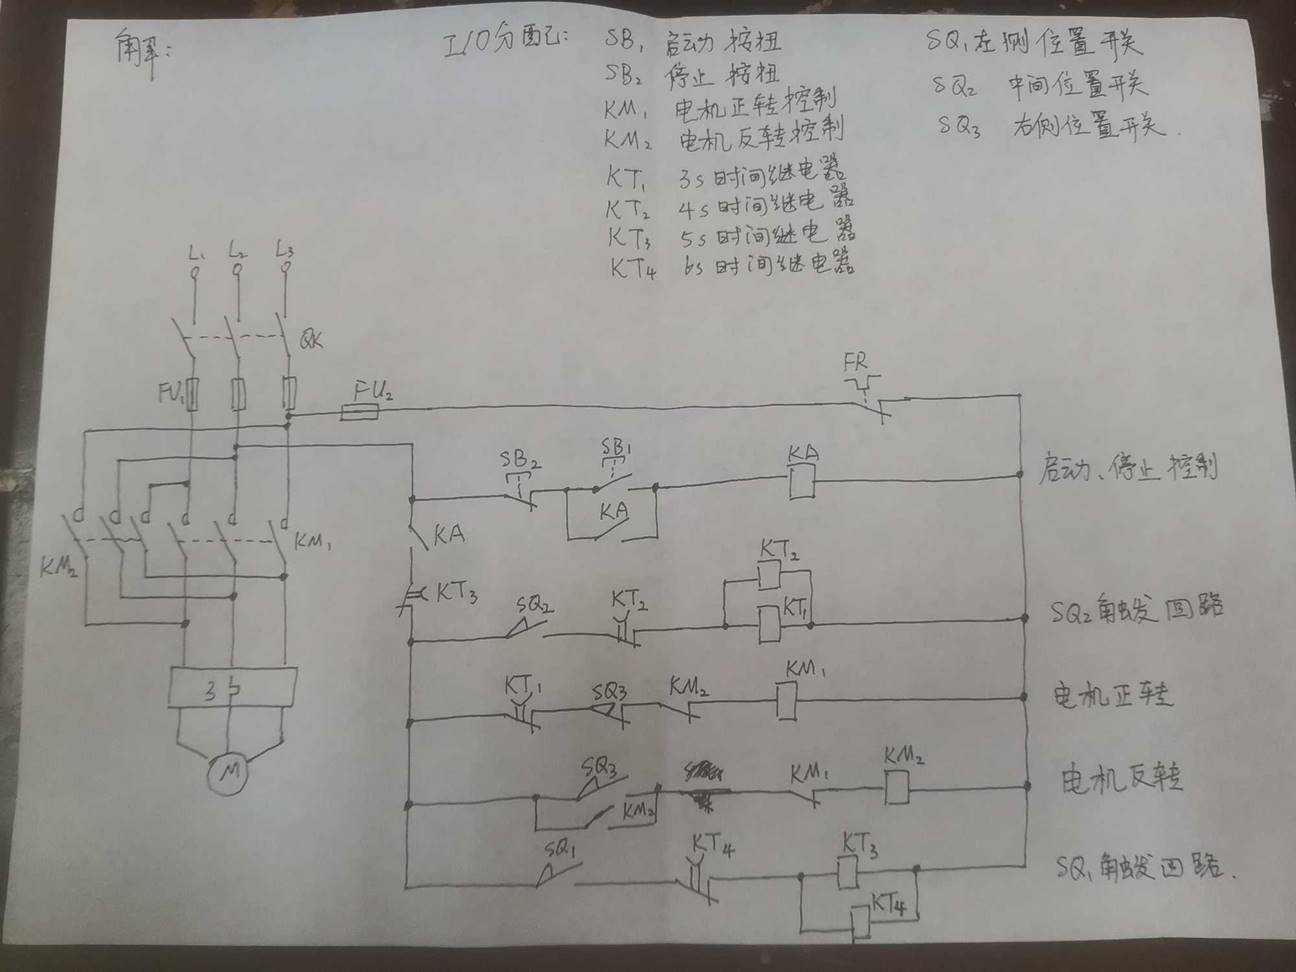 解:
I/O分配: SB₁ 启动按钮
SB₂ 停止按钮
KM₁ 电机正转控制
KM₂ 电机反转控制
KT₁ 3s时间继电器
KT₂ 4s时间继电器
KT₃ 5s时间继电器
KT₄ 6s时间继电器
SQ₁左侧位置开关
SQ₂ 中间位置开关
SQ₃ 右侧位置开关.
L₁ L₂ L₃
QK
FU₁
FU₂
FR
SB₂ SB₁ KA 启动、停止控制
KA
KA
KM₂ KM₁
KT₃
KT₂
SQ₂ KT₂ KT₁ SQ₂触发回路
3
KT₁ SQ₃ KM₂ KM₁ 电机正转
M
SQ₃ KM₁ KM₂ 电机反转
KM₂
SQ₁ KT₄ KT₃ SQ₁触发回路.
KT₄